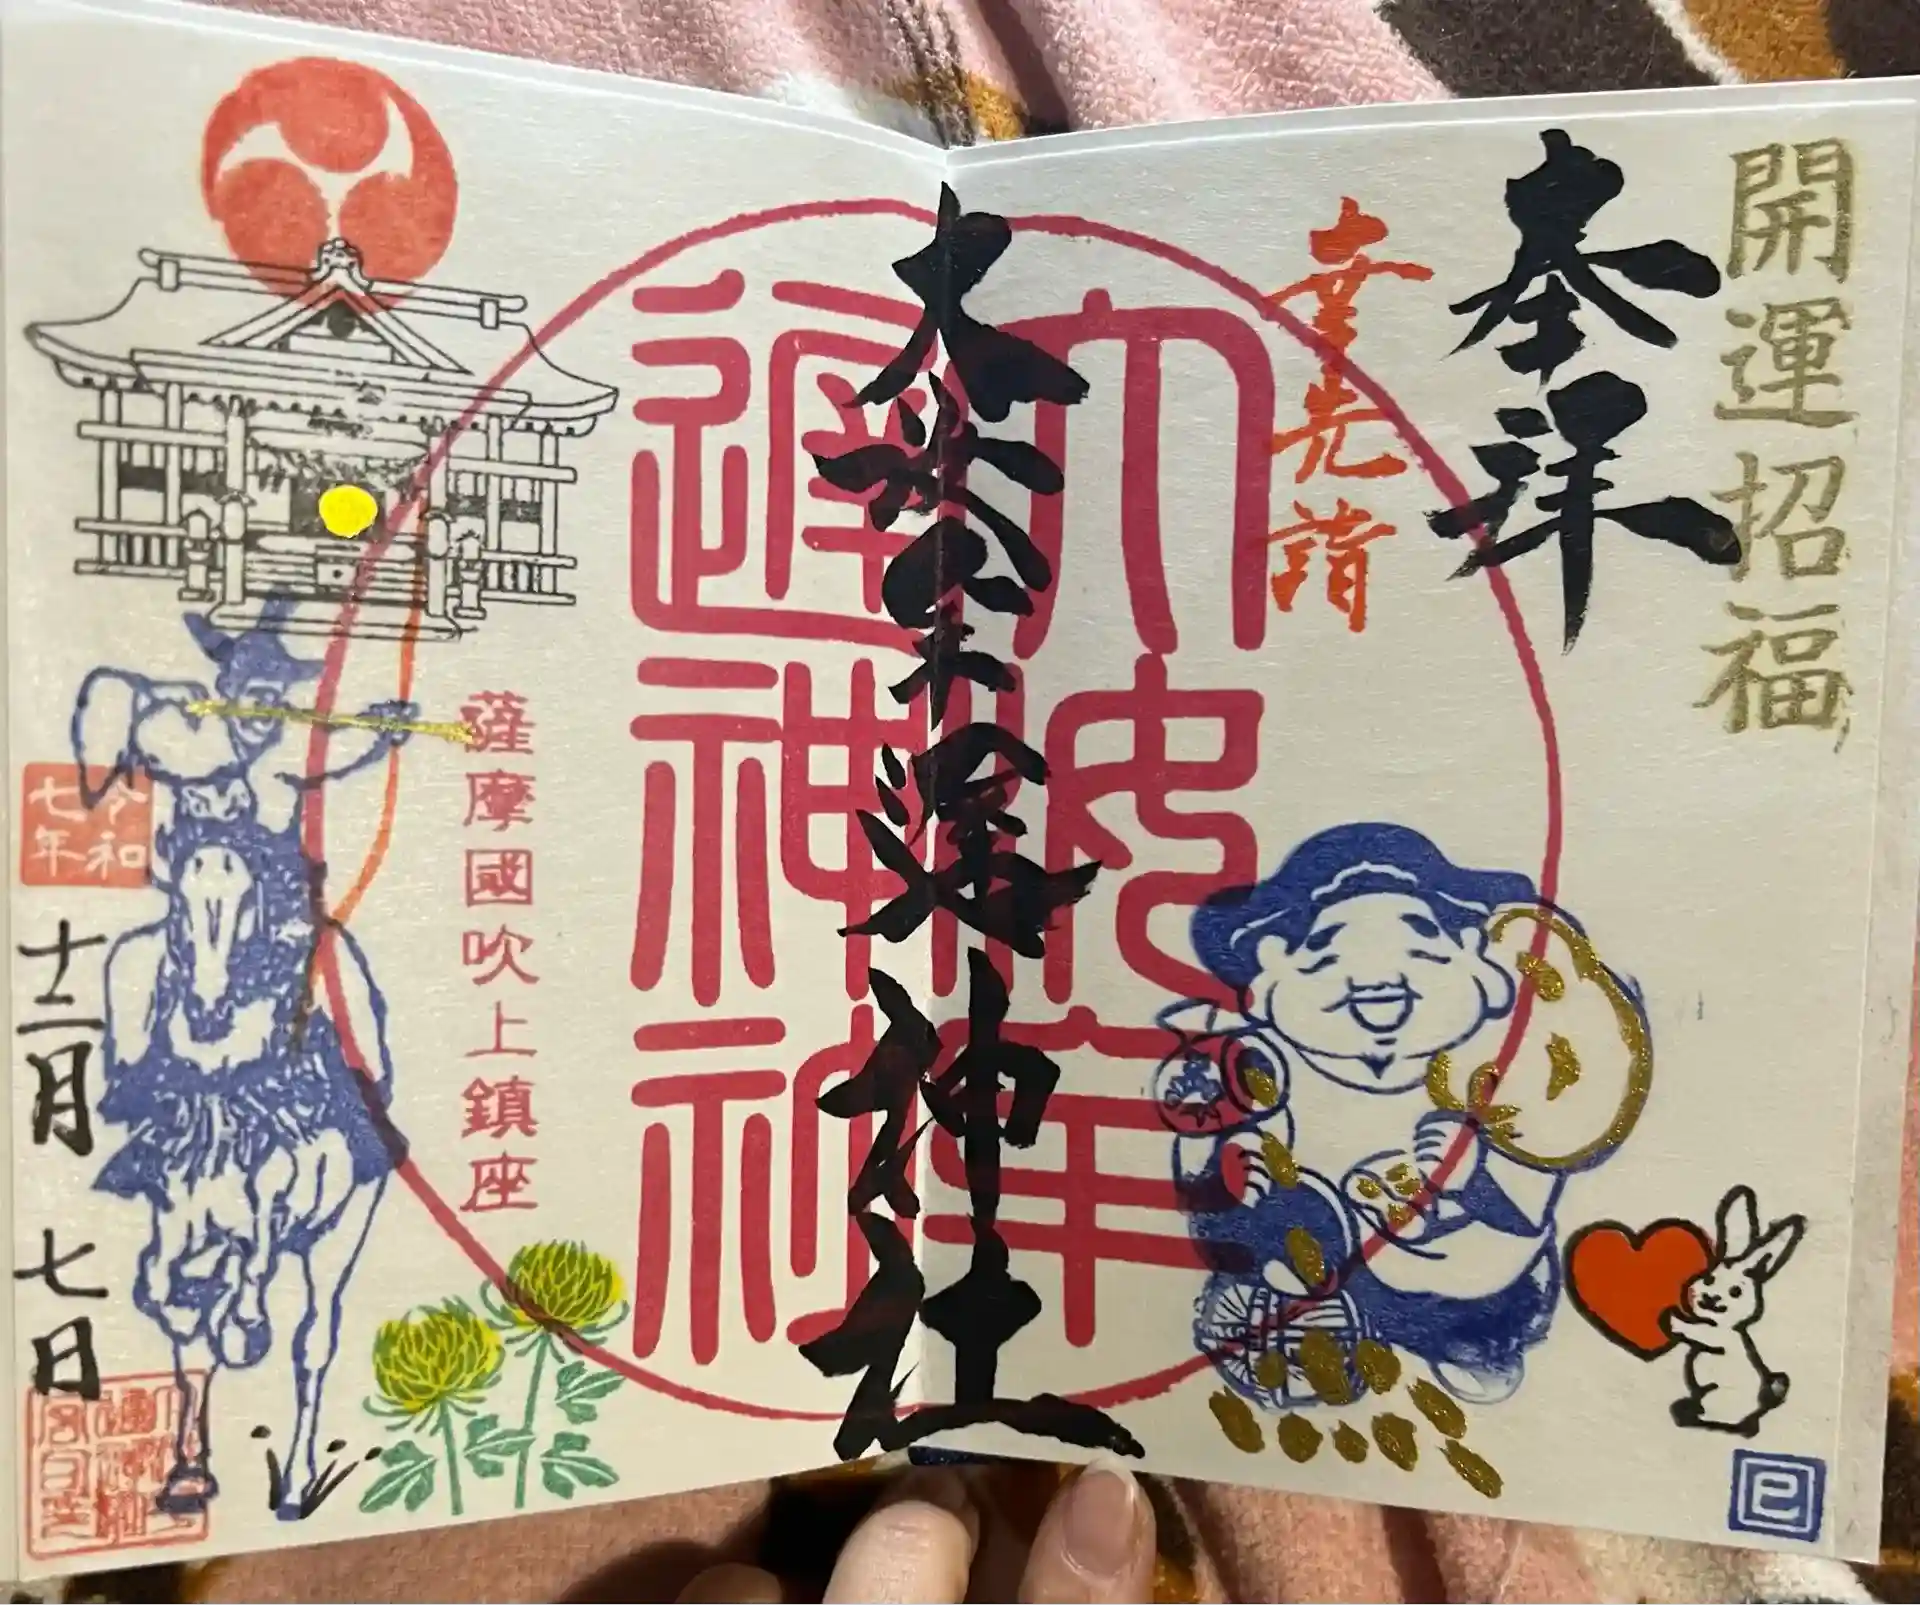 開運招福
奉拝
幸先詣
大汝牟遲神社
大汝牟
遲神社
薩摩國吹上鎮座
令和
七年
十二月七日
巳